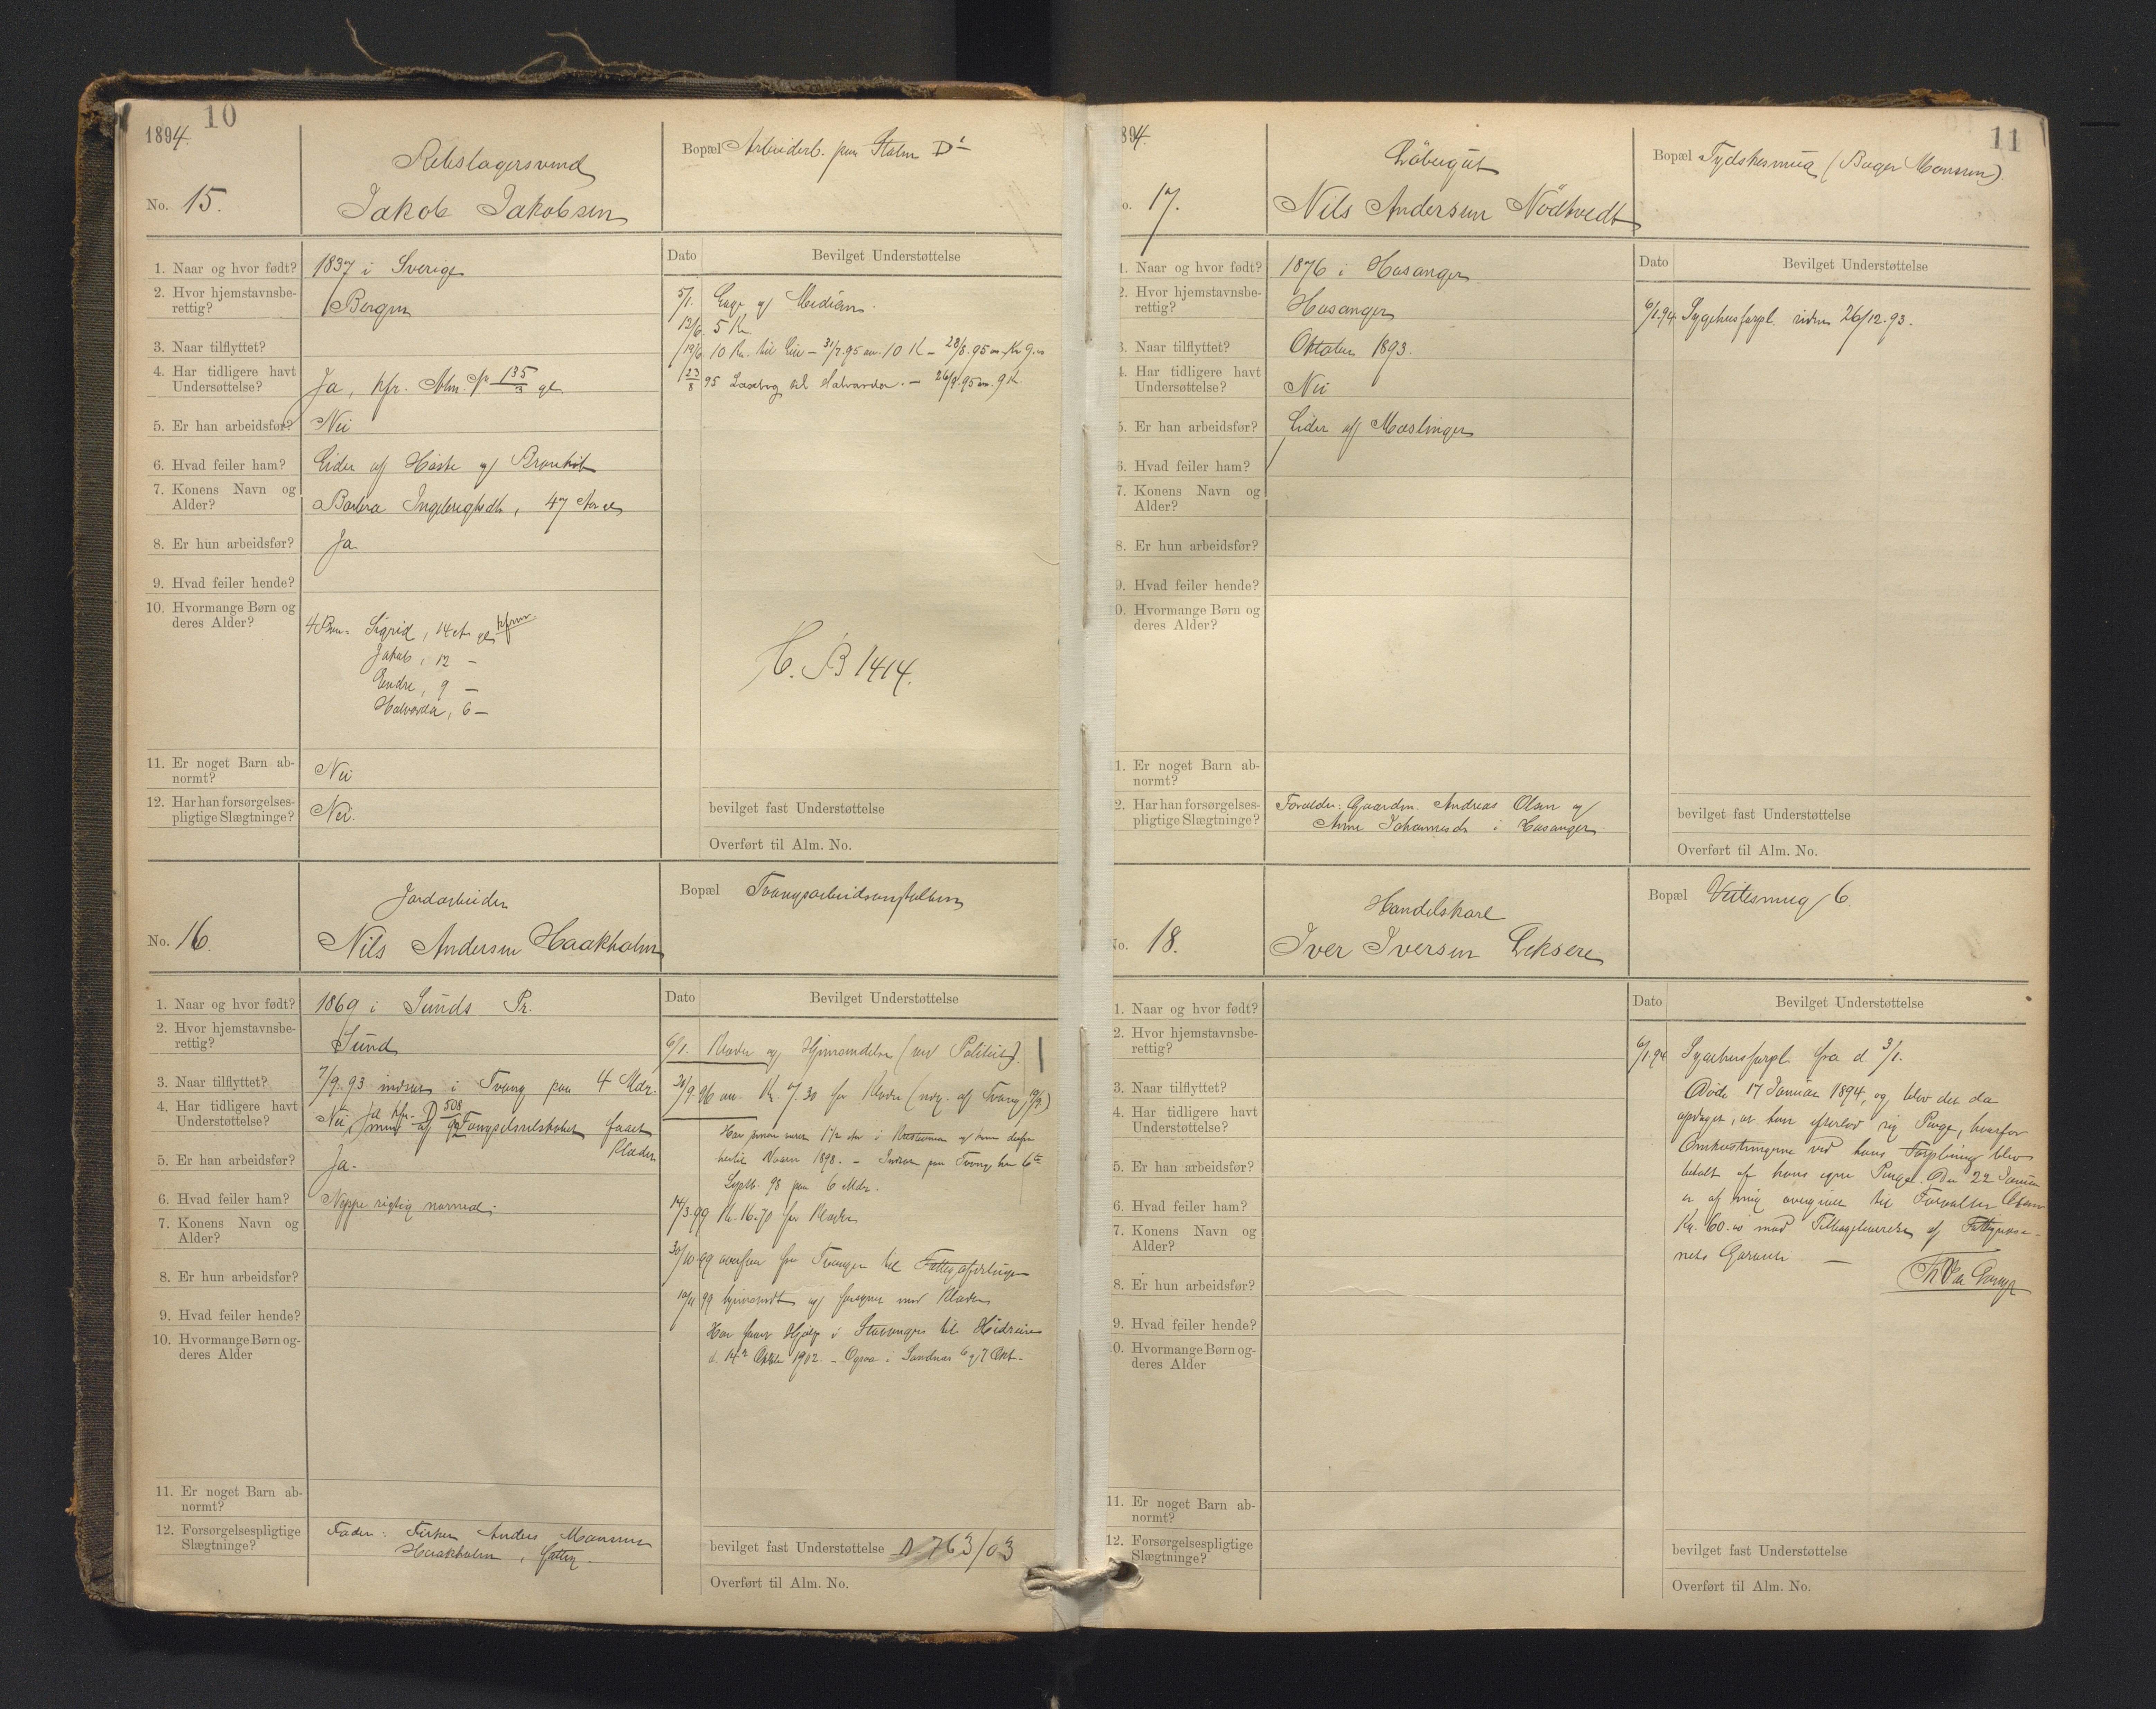 10
1894.
No. 15.
Rebslagersvend
Jakob Jakobsen
Bopæl Arbeiderb. paa Stølen D
1. Naar og hvor født? 1837 i Sverige
2. Hvor hjemstavnsbe-
rettig? Bergen
3. Naar tilflyttet?
4. Har tidligere havt
Undersøttelse? Ja, kfr. Alm. No 135/3 gl.
5. Er han arbeidsfør? Nei
6. Hvad feiler ham? Lider af Hoste og Bronkit
7. Konens Navn og
Alder? Barbra Ingebrigtsdtr, 47 Aar gl
8. Er hun arbeidsfør? Ja.
9. Hvad feiler hende?
10. Hvormange Børn og
deres Alder? 4 Børn: Sigrid, 14 Aar gl
Jakob, 12 —
Endre, 9 —
Halvarda, 6 —
11. Er noget Barn ab-
normt? Nei
12. Har han forsørgelses-
pligtige Slægtninge? Nei.
Dato Bevilget Understøttelse
5/1. Læge og Medicin.
12/6 5 Kr
19/6 10 Kr. til Leie — 31/7.95 10 K — 28/8.95 Kr 9.
23/8 95 til Halvarda. — 26/9.95 9 K
H. B 1414.
bevilget fast Understøttelse
Overført til Alm. No.
No. 16.
Jordarbeider
Nils Andersen Haakholm
Bopæl Tvangsarbeidsanstalten
1. Naar og hvor født? 1869 i Sunds Pr.
2. Hvor hjemstavnsbe-
rettig? Sund
3. Naar tilflyttet? 7/9.93 indsat i Tvang paa 4 Mdr.
4. Har tidligere havt
Understøttelse? Nei, Ja kfr. D 508/92
men af Fængselsselskabet faaet
Klæder
5. Er han arbeidsfør? Ja.
6. Hvad feiler ham? Neppe rigtig normal.
7. Konens Navn og
Alder?
8. Er hun arbeidsfør?
9. Hvad feiler hende?
10. Hvormange Børn og-
deres Alder
11. Er noget Barn ab-
normt?
12. Forsørgelsespligtige
Slægtninge? Fader: Fisker Anders Monsen
Haakholm, fattig.
Dato Bevilget Understøttelse
6/1. Klæder og Hjemsendelse (ved Politiet).
30/9.96 an. Kr. 7.30 for Klæder (udg. af Tvang 19/9)
Har siden været 1 1/2 Aar i Kristiania og kom derfra
hertil Vaaren 1898. — Indsat paa Tvang her 6te
Septb. 98 paa 6 Mdr.
14/3.99 Kr. 16.70 for Klæder
30/10.99 overført fra Tvangen til Fattigafdelingen
10/11 99 hjemsendt og forsynet med Klæder
Har faaet Hjælp i Stavanger til Hidreise
d. 14de Oktober 1902. — Ogsaa i Sandnæs 6 og 7 Okt.
bevilget fast Understøttelse D 763/03
Overført til Alm. No.
11
894.
o. 17.
Løbergut
Nils Andersen Nødtvedt
Bopæl Tydskesmug (Bager Monsen).
1. Naar og hvor født? 1876 i Hosanger
2. Hvor hjemstavnsbe-
rettig? Hosanger
3. Naar tilflyttet? Oktober 1893.
4. Har tidligere havt
Undersøttelse? Nei
5. Er han arbeidsfør? Lider af Mæslinger
6. Hvad feiler ham?
7. Konens Navn og
Alder?
8. Er hun arbeidsfør?
9. Hvad feiler hende?
0. Hvormange Børn og
deres Alder?
1. Er noget Barn ab-
normt?
2. Har han forsørgelses-
pligtige Slægtninge? Forældre: Gaardm. Andreas Olsen og
Anne Johannesdr i Hosanger.
Dato Bevilget Understøttelse
6/1.94 Sygehusforpl. siden 26/12.93.
bevilget fast Understøttelse
Overført til Alm. No.
No. 18.
Handelskarl
Iver Iversen Eksere
Bopæl Veitesmug 6.
1. Naar og hvor født?
2. Hvor hjemstavnsbe-
rettig?
3. Naar tilflyttet?
4. Har tidligere havt
Understøttelse?
5. Er han arbeidsfør?
6. Hvad feiler ham?
7. Konens Navn og
Alder?
8. Er hun arbeidsfør?
9. Hvad feiler hende?
0. Hvormange Børn og-
deres Alder
11. Er noget Barn ab-
normt?
12. Forsørgelsespligtige
Slægtninge?
Dato Bevilget Understøttelse
6/1.94 Sygehusforpl. fra d 3/1.
Døde 17 Januar 1894, og blev det da
opdaget, at han efterlod sig Penge, hvorfor
Omkostningerne ved hans Forpleining blev
betalt af hans egne Penge. Den 22 Januar
er af mig overgivet til Forvalter
Kr. 60.00 mod Tilbageleverelse af Fattigvæse-
nets Garanti. —
bevilget fast Understøttelse
Overført til Alm. No.